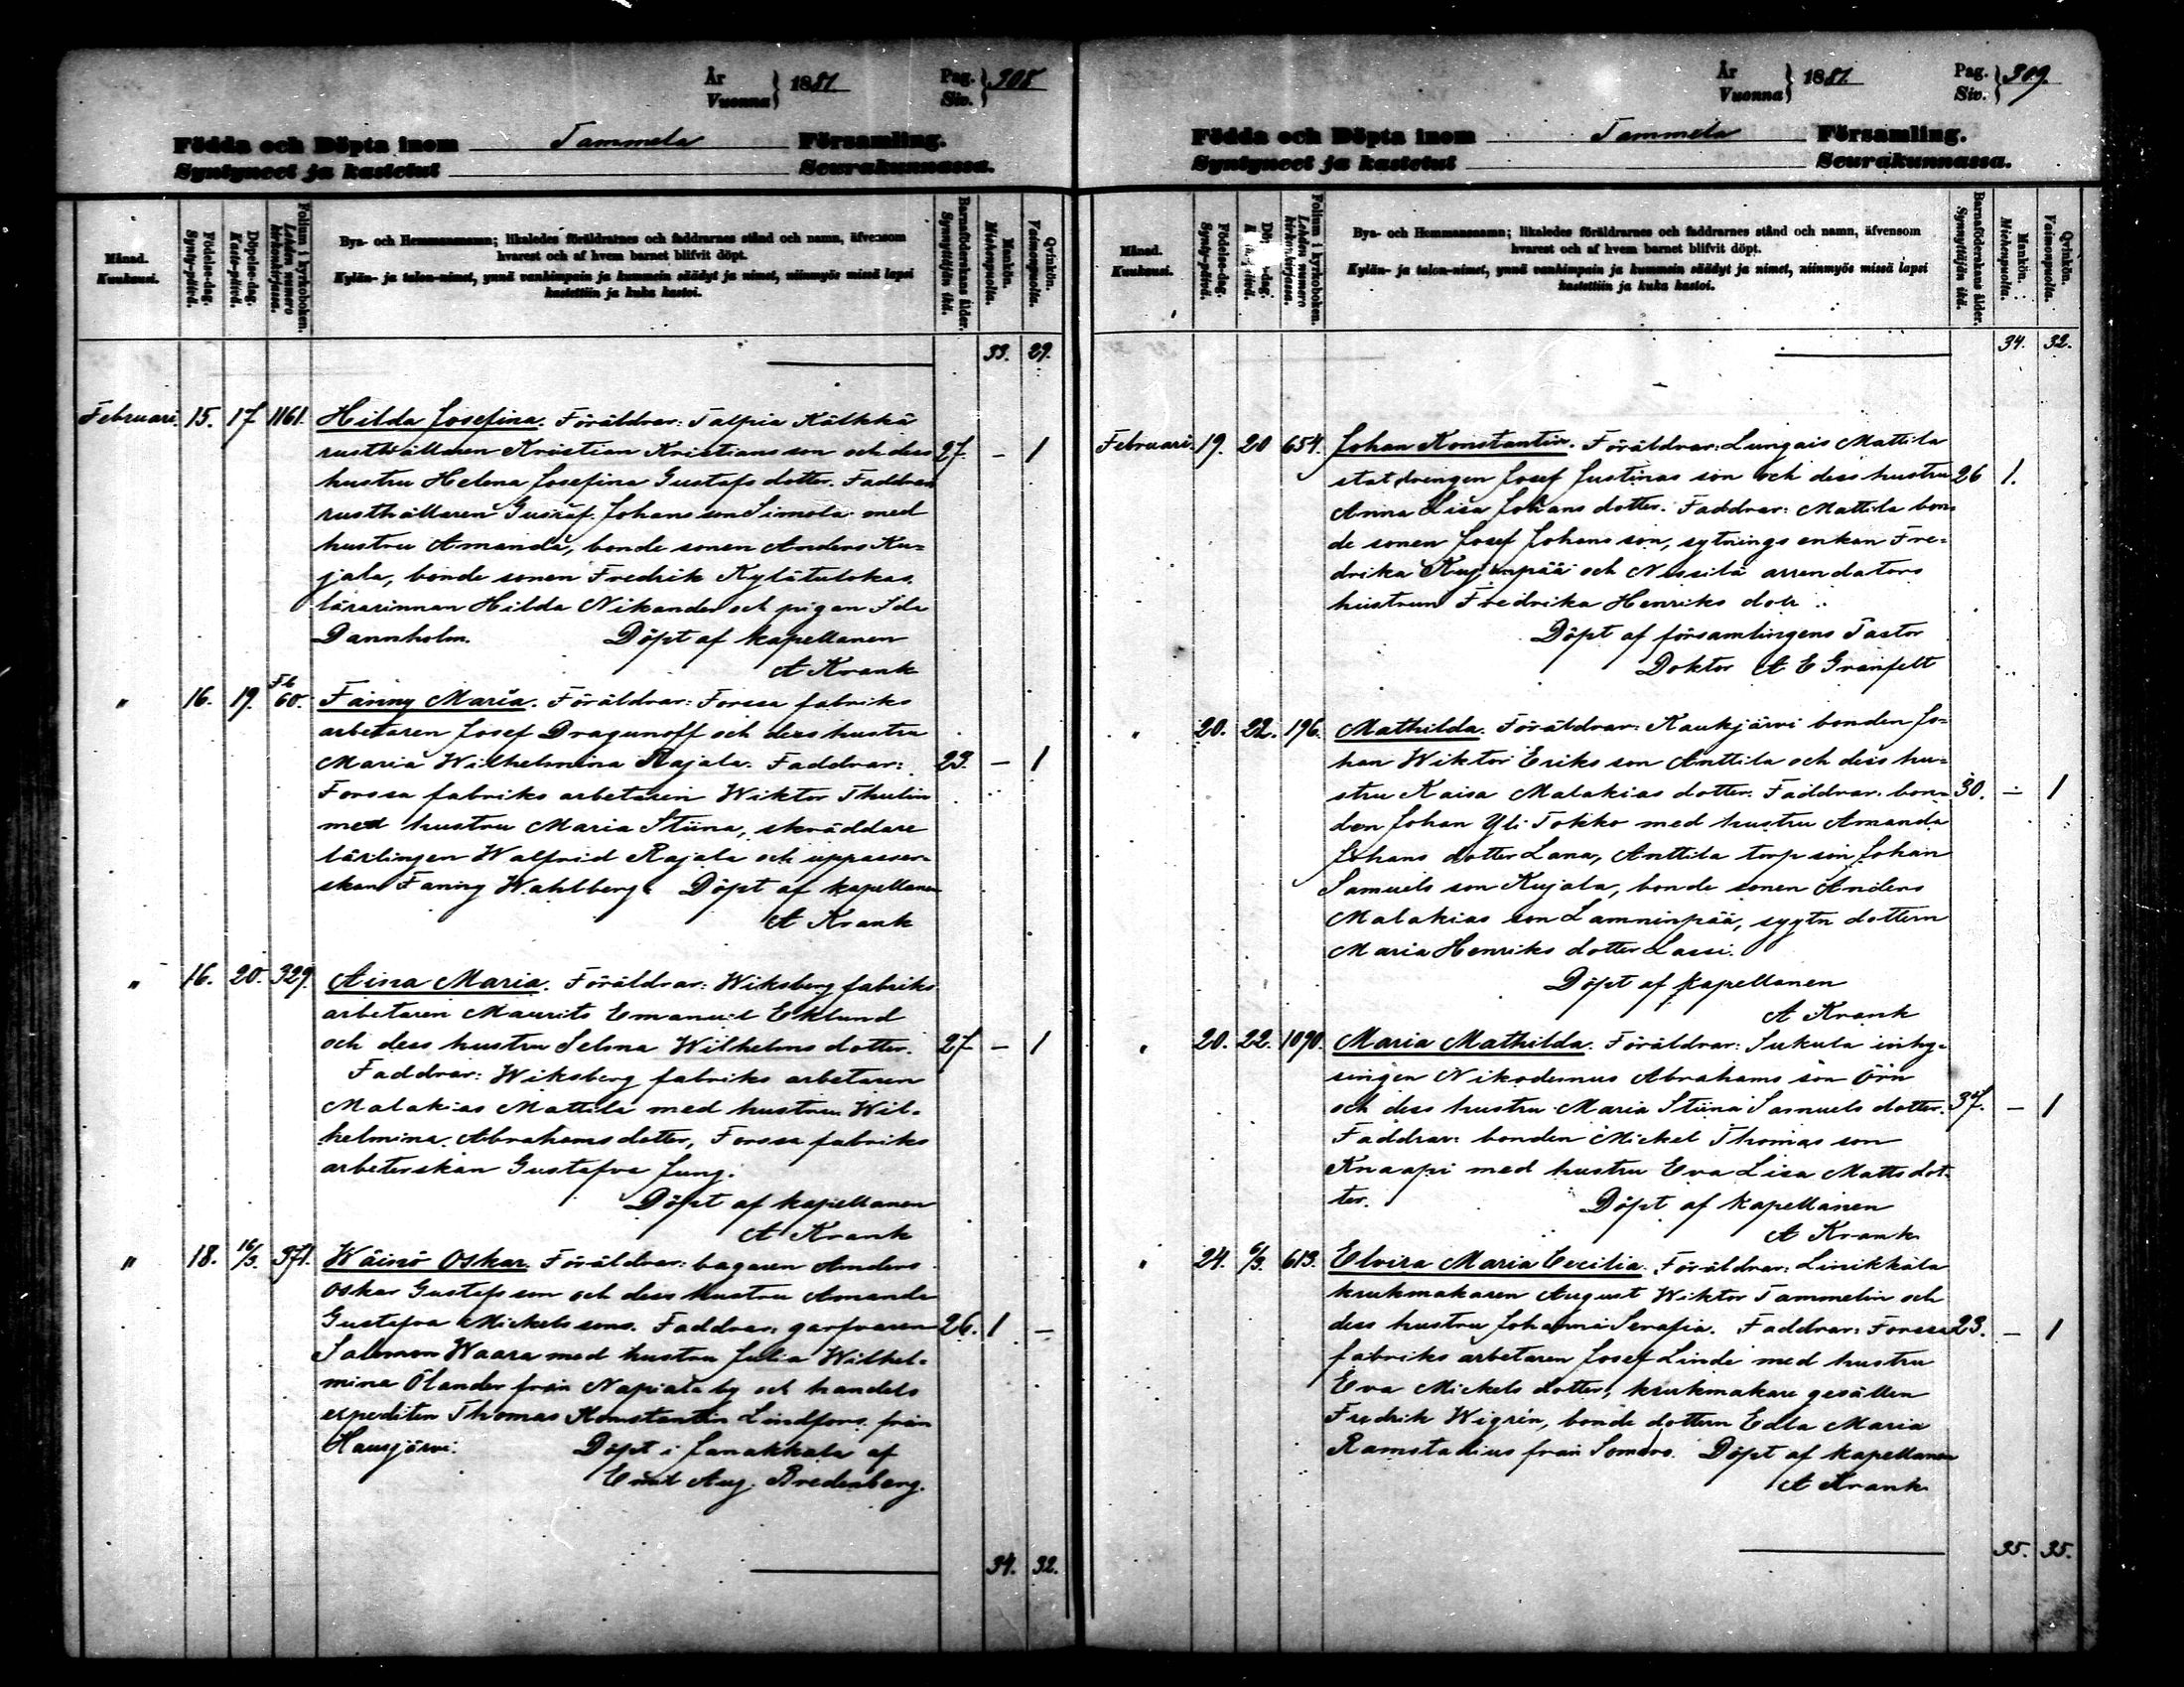 År
Vuonna } 1881.
Pag.
Siv. } 308
Födda och Döpta inom Tammela Församling.
Syntyneet ja kastetut Seurakunnassa.
Månad.
Kuukausi.
Födelse-dag.
Synty-päivä.
Döpelse-dag.
Kaste-päivä.
Folium i kyrkoboken.
Lehden numero
kirkonkirjassa.
Bya- och Hemmansnamn; likaledes föräldrarnes och faddrarnes stånd och namn, äfvensom
hvarest och af hvem barnet blifvit döpt.
Kylän- ja talon-nimet, ynnä vanhimpain ja kummein säädyt ja nimet, niinmyös missä lapsi
kastettiin ja kuka kastoi.
Barnaföderskans ålder.
Synnyttäjän ikä.
Mankön.
Miehenpuolta.
Qvinkön.
Vaimonpuolta.
33. 29.
Februari. 15. 17 1161. Hilda Josefina. Föräldrar: Talpia Kälkkä
rusthållaren Kristian Kristians son och dess 27. - 1
hustru Helena Josefina Gustafs dotter. Faddrar
rusthållaren Gustaf Johans son Simola med
hustru Amanda, bonde sonen Anders Ku=
jala, bonde sonen Fredrik Kylätulokas,
lärarinnan Hilda Nikander och pigan Ida
Dannholm. Döpt af kapellanen
A Krank
" 16. 19. Fb 60. Fanny Maria. Föräldrar: Forssa fabriks
arbetaren Josef Dragunoff och dess hustru
Maria Wilhelmina Rajala. Faddrar: 23. - 1
Forssa fabriks arbetaren Wiktor Thulin
med hustru Maria Stiina, skräddare
lärlingen Walfrid Rajala och uppasser=
skan Fanny Wahlberg. Döpt af kapellanen
A Krank
" 16. 20. 329. Aina Maria. Föräldrar: Wiksberg fabriks
arbetaren Maurits Emanuel Eklund
och dess hustru Selma Wilhelms dotter. 27 - 1
Faddrar: Wiksberg fabriks arbetaren
Malakias Mattila med hustru Wil=
helmina Abrahams dotter, Forssa fabriks
arbeterskan Gustafva Jung.
Döpt af kapellanen
A Krank
" 18. 16/3. 371. Wäinö Oskar. Föräldrar: bagaren Anders
Oskar Gustafs son och dess hustru Amanda
Gustafva Mickelssons. Faddrar: garfvaren 26. 1 -
Salomon Waara med hustru Julia Wilhel=
mina Ölander från Napiala by och handels
expediten Thomas Konstantin Lindfors från
Hausjärvi. Döpt i Janakkala af
Emil Aug. Bredenberg.
34. 32.
År
Vuonna } 1881.
Pag.
Siv. } 309.
Födda och Döpta inom Tammela Församling.
Syntyneet ja kastetut Seurakunnassa.
Månad.
Kuukausi.
Födelse-dag.
Synty-päivä.
Folium i kyrkoboken.
Lehden numero
kirkonkirjassa.
Bya- och Hemmansnamn; likaledes föräldrarnes och faddrarnes stånd och namn, äfvensom
hvarest och af hvem barnet blifvit döpt.
Kylän- ja talon-nimet, ynnä vanhimpain ja kummein säädyt ja nimet, niinmyös missä lapsi
kastettiin ja kuka kastoi.
Barnaföderskans ålder.
Synnyttäjän ikä.
Mankön.
Miehenpuolta.
Qvinkön.
Vaimonpuolta.
34. 32.
Februari 19. 20 654. Johan Konstantin. Föräldrar: Lungais Mattila
statdrengen Josef Justinas son och dess hustru 26 1.
Anna Lisa Johans dotter. Faddrar: Mattila bon=
de sonen Josef Johans son, sytnings enkan Fre=
drika Kujanpää och Nissilä arrendators
hustrun Fredrika Henriks dotr.
Döpt af församlingens Pastor
Doktor A E Granfelt
" 20. 22. 196. Mathilda. Föräldrar: Kaukjärvi bonden Jo=
han Wiktor Eriks son Anttila och dess hu=
stru Kaisa Malakias dotter. Faddrar: bon= 30. - 1
den Johan Yli Tokko med hustru Amanda
Johans dotter Lana, Anttila torp son Johan
Samuels son Kujala, bonde sonen Anders
Malakias son Lamminpää, sytn dottern
Maria Henriks dotter Lassi.
Döpt af kapellanen
A Krank
" 20. 22. 1090. Maria Mathilda. Föräldrar: Sukula inhy=
singen Nikodemus Abrahams son Örn
och dess hustru Maria Stiina Samuels dotter. 37. - 1
Faddrar: bonden Mickel Thomas son
Knaapi med hustru Eva Lisa Matts dot=
ter. Döpt af kapellanen
A Krank
" 24. 6/3. 613. Elvira Maria Cecilia. Föräldrar: Linikkala
krukmakaren August Wiktor Tammelin och
dess hustru Johanna Serafia. Faddrar: Forssa 23. - 1
fabriks arbetaren Josef Linde med hustru
Eva Mickels dotter, krukmakare gesällen
Fredrik Wigrén, bonde dottern Edla Maria
Ramstadius från Somero. Döpt af kapellanen
A Krank
35. 35.